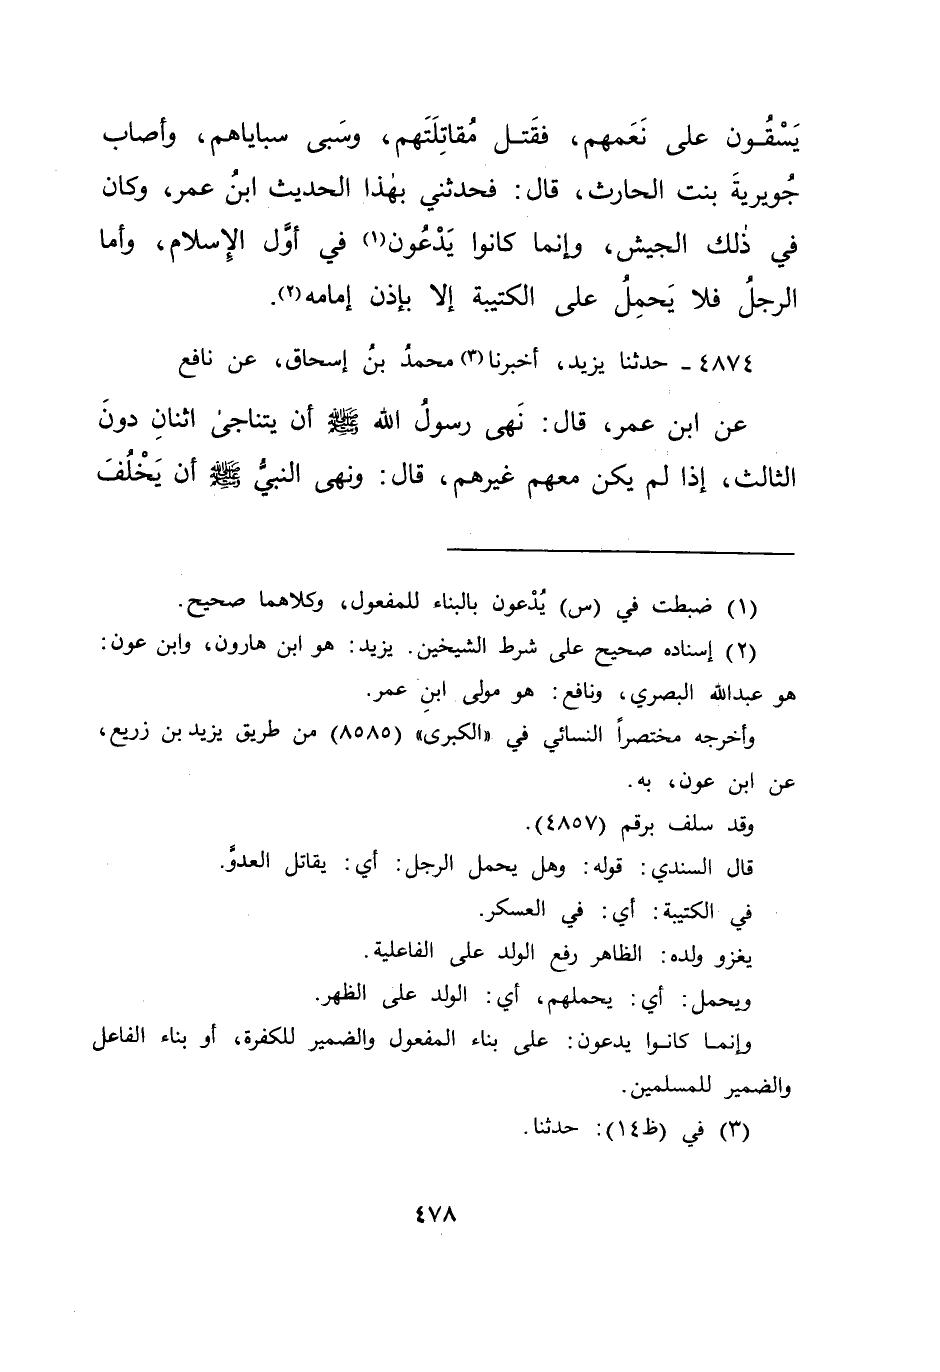 يَسْقُون على نَعَمهم، فقَتل مُقاتِلَتَهم، وسَبى سباياهم، وأصاب
جُويريةَ بنت الحارث، قال: فحدثني بهٰذا الحديث ابنُ عمر، وكان
في ذٰلك الجيش، وإنما كانوا يَدْعُون(١) في أوَّل الإِسلام، وأما
الرجلُ فلا يَحمِلُ على الكتيبة إلا بإذن إمامه(٢).
٤٨٧٤ ـ حدثنا يزيد، أخبرنا(٣) محمدُ بنُ إسحاق، عن نافع
عن ابن عمر، قال: نَهى رسولُ الله ﷺ أن يتناجىٰ اثنانِ دونَ
الثالث، إذا لم يكن معهم غيرهم، قال: ونهى النبيُّ ﷺ أن يَخْلُفَ
(١) ضبطت في (س) يُدْعون بالبناء للمفعول، وكلاهما صحيح.
(٢) إسناده صحيح على شرط الشيخين. يزيد: هو ابن هارون، وابن عون:
هو عبدالله البصري، ونافع: هو مولى ابنِ عمر.
وأخرجه مختصراً النسائي في «الكبرى» (٨٥٨٥) من طريق يزيد بن زريع،
عن ابن عون، به.
وقد سلف برقم (٤٨٥٧).
قال السندي: قوله: وهل يحمل الرجل: أي: يقاتل العدوَّ.
في الكتيبة: أي: في العسكر.
يغزو ولده: الظاهر رفع الولد على الفاعلية.
ويحمل: أي: يحملهم، أي: الولد على الظهر.
وإنما كانوا يدعون: على بناء المفعول والضمير للكفرة، أو بناء الفاعل
والضمير للمسلمين.
(٣) في (ظ١٤): حدثنا.
٤٧٨